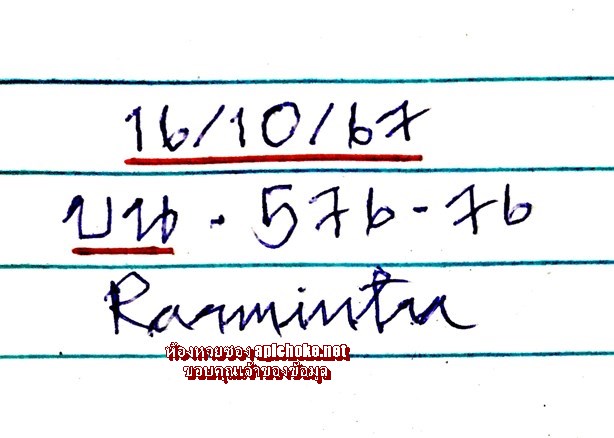 16/10/67
บน. 576-76
Raamintra
ห้องหวยซอง apichoke.net
ขอบคุณเจ้าของข้อมูล